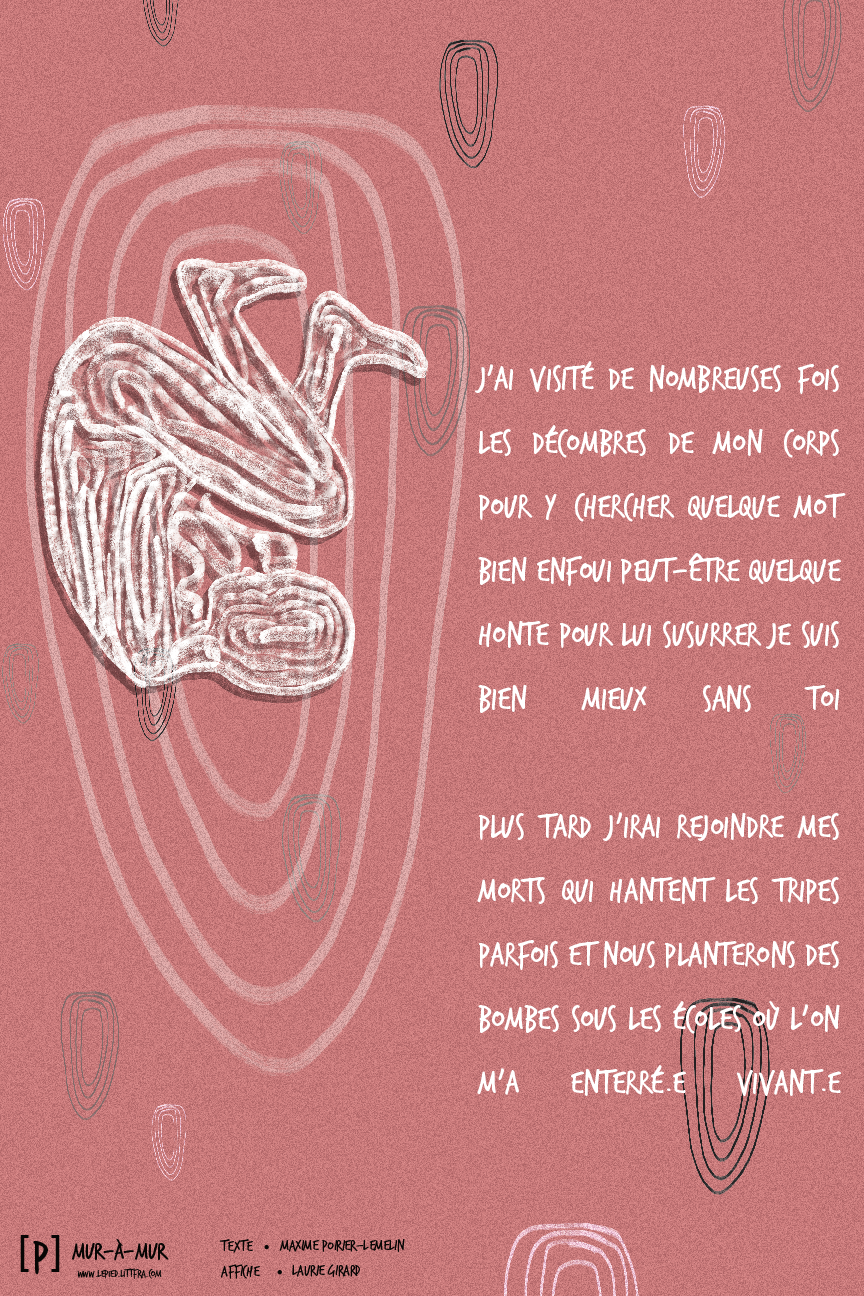 J'AI VISITÉ DE NOMBREUSES FOIS
LES DÉCOMBRES DE MON CORPS
POUR Y CHERCHER QUELQUE MOT
BIEN ENFOUI PEUT-ÊTRE QUELQUE
HONTE POUR LUI SUSURRER JE SUIS
BIEN MIEUX SANS TOI
PLUS TARD J'IRAI REJOINDRE MES
MORTS QUI HANTENT LES TRIPES
PARFOIS ET NOUS PLANTERONS DES
BOMBES SOUS LES ÉCOLES OÙ L'ON
M'A ENTERRÉ.E VIVANT.E
[P] MUR-À-MUR
WWW.LEPIED.LITTFRA.COM
TEXTE • MAXIME POIRIER-LEMELIN
AFFICHE • LAURIE GIRARD